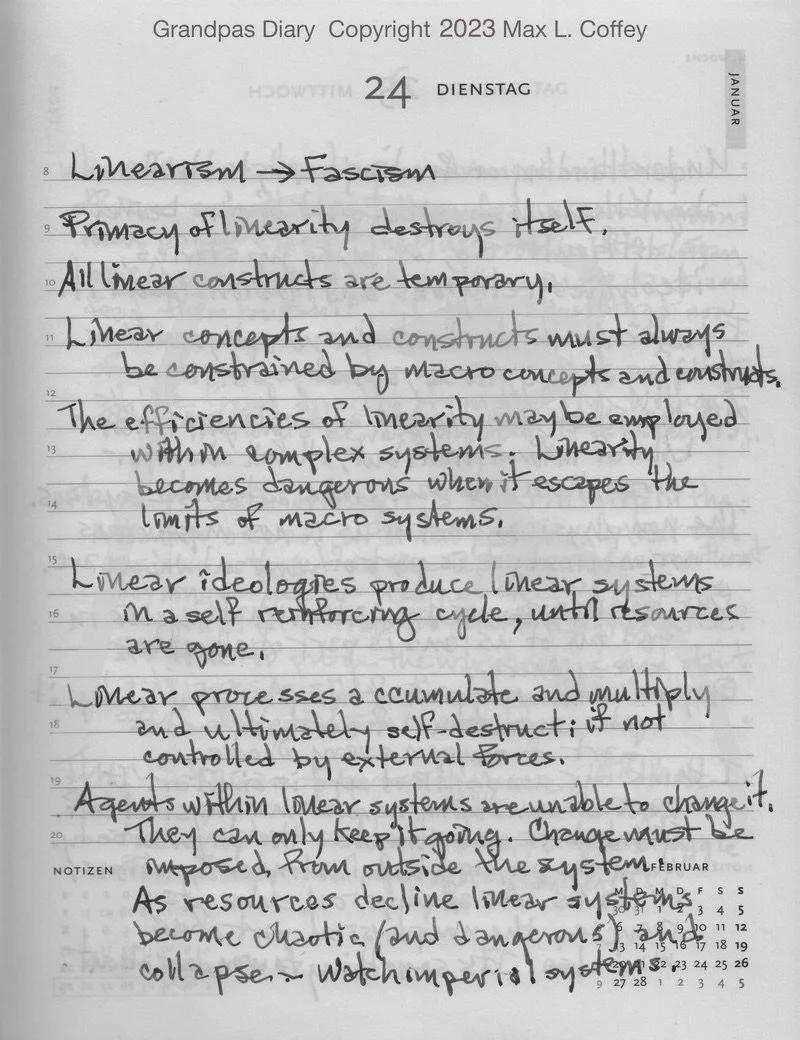 Grandpas Diary Copyright 2023 Max L. Coffey
24 DIENSTAG
JANUAR
8 Linearism → Fascism
9 Primacy of linearity destroys itself.
10 All linear constructs are temporary.
11 Linear concepts and constructs must always
be constrained by macro concepts and constructs.
12
The efficiencies of linearity may be employed
13 within complex systems. Linearity
becomes dangerous when it escapes the
14 limits of macro systems.
15 Linear ideologies produce linear systems
16 in a self reinforcing cycle, until resources
are gone.
17
Linear processes accumulate and multiply
18 and ultimately self-destruct; if not
controlled by external forces.
19 Agents within linear systems are unable to change it.
20 They can only keep it going. Change must be
NOTIZEN imposed from outside the system. FEBRUAR
M D M D F S S
As resources decline linear systems
30 31 1 2 3 4 5
become chaotic (and dangerous) and
6 7 8 9 10 11 12
13 14 15 16 17 18 19
collapse. ~ Watch imperial systems.
20 21 22 23 24 25 26
9 27 28 1 2 3 4 5